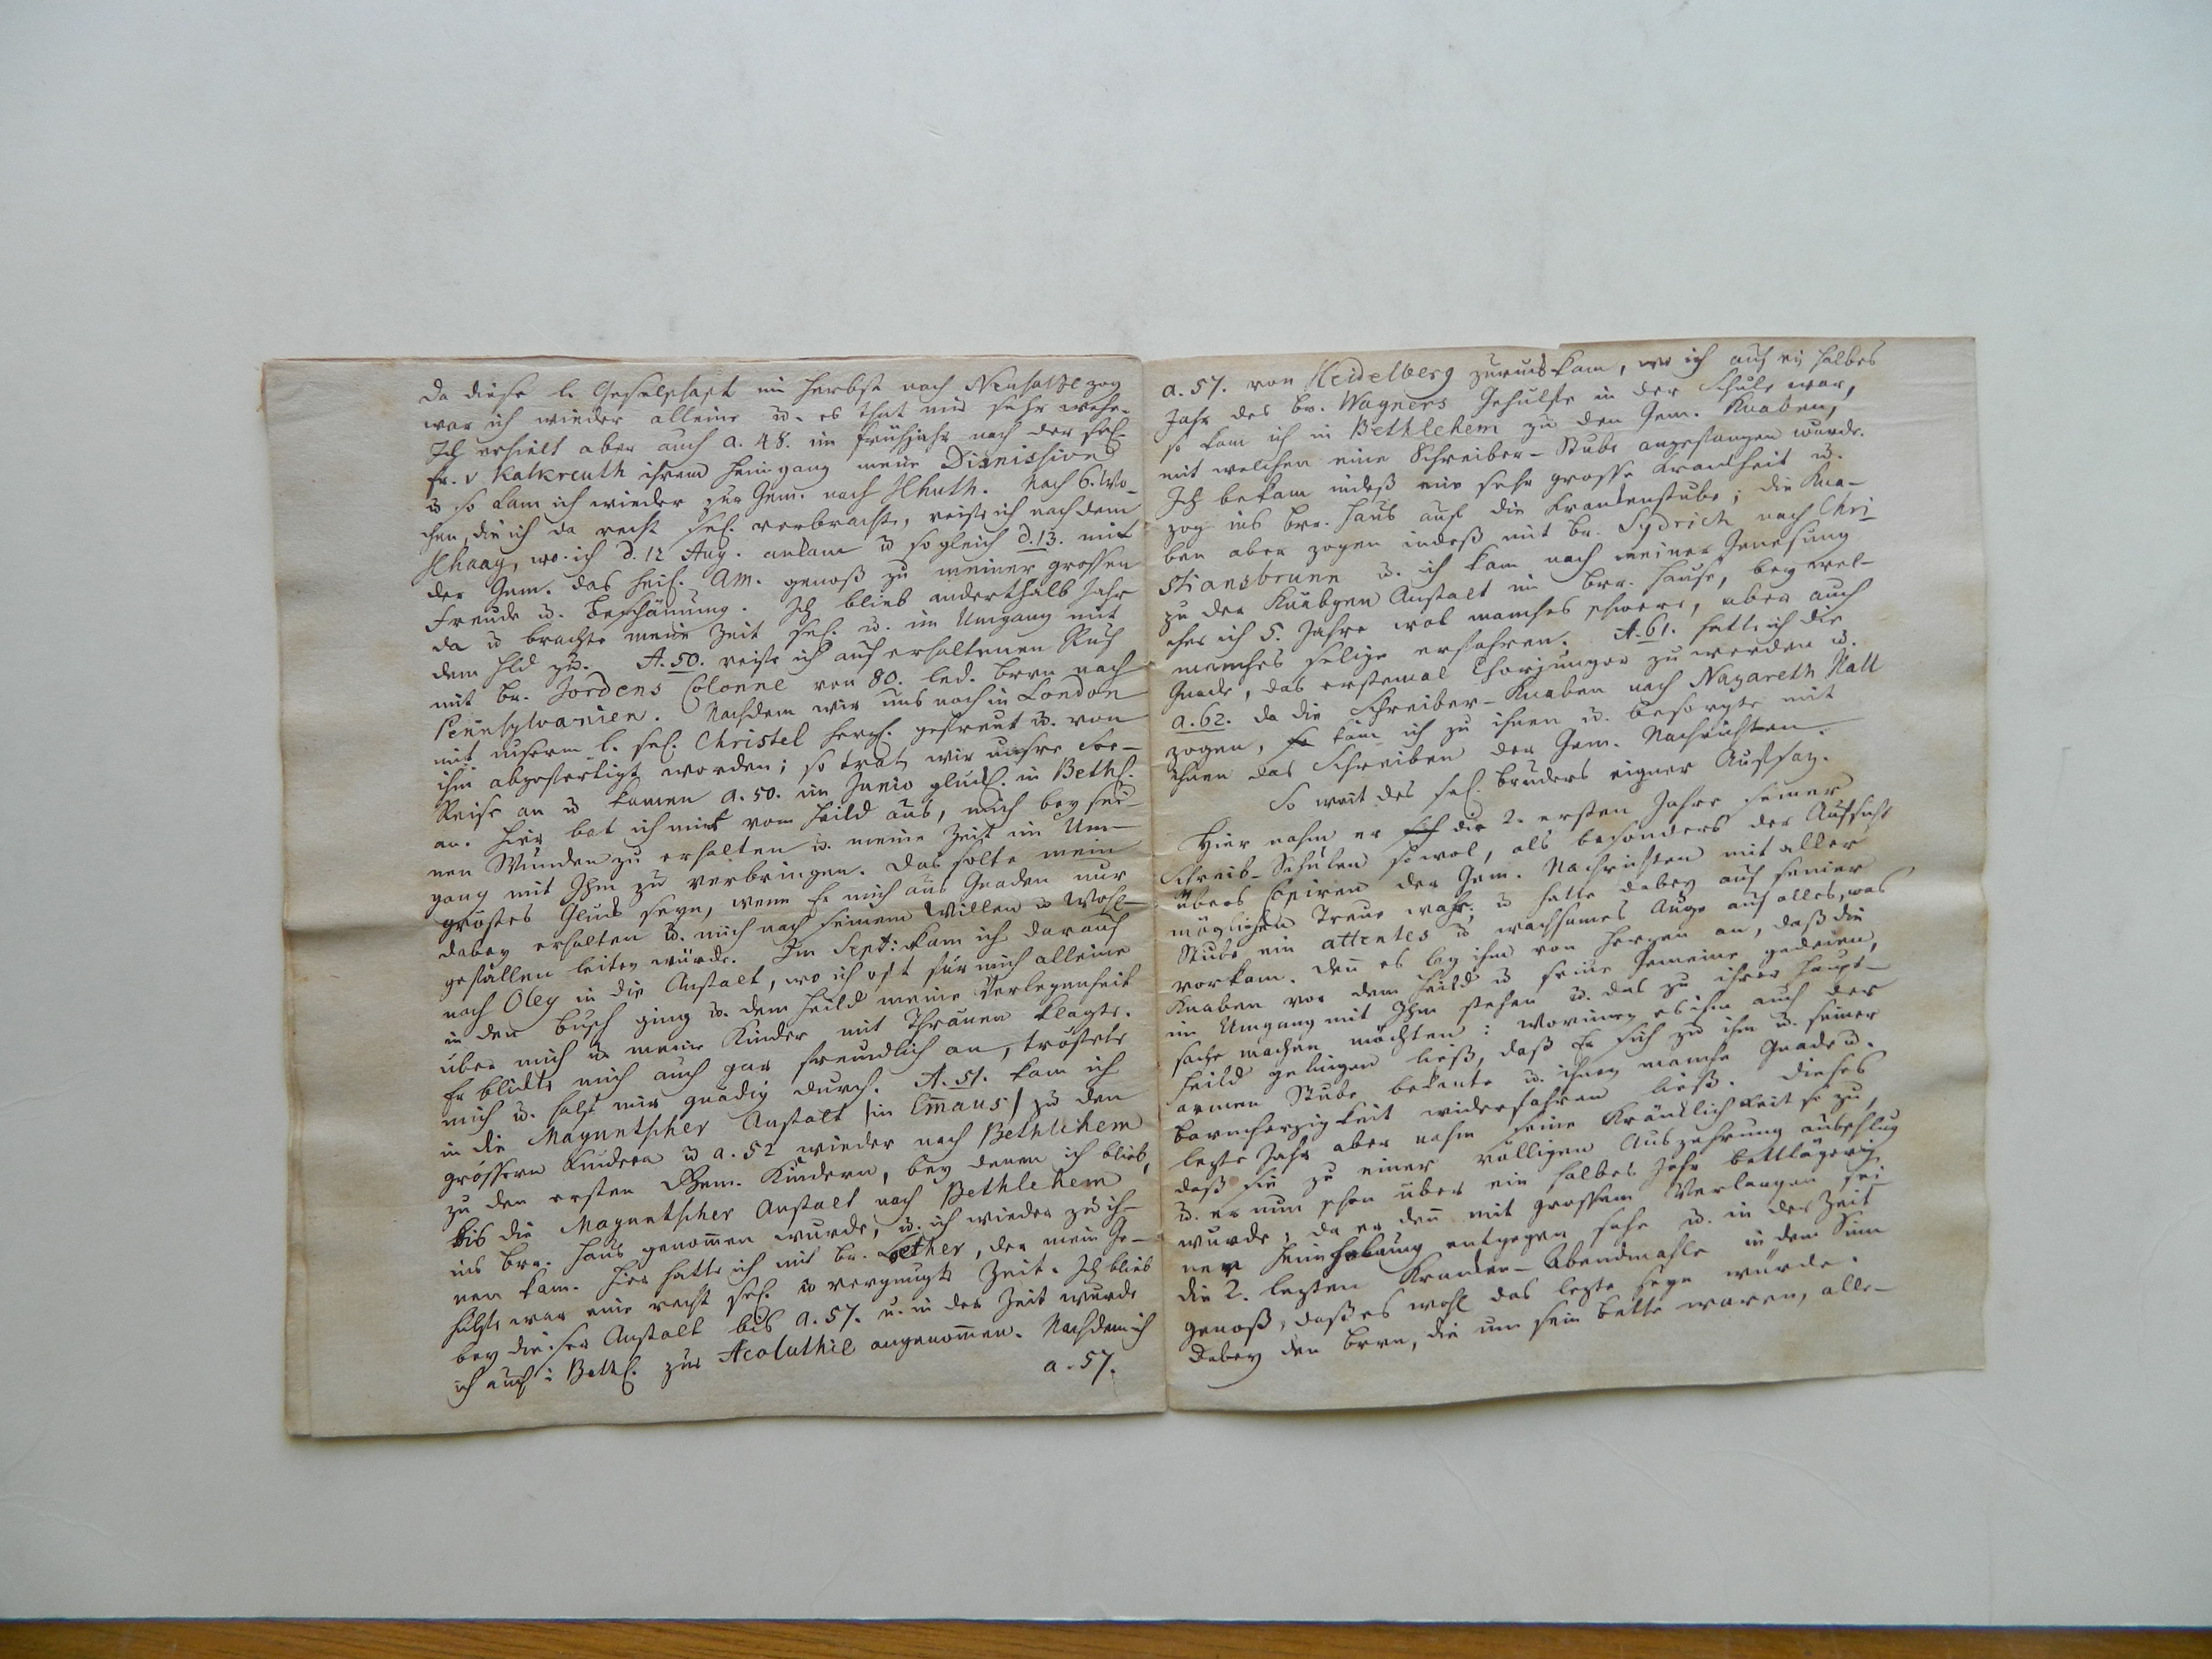 Da diese l. Geselschaft im Herbst nach Neusalze zog
war ich wieder alleine u. es that mir sehr wehe.
Ich erhielt aber auch a. 48. im Frühjahr nach der sel.
Fr. v Kalkreuth ihrem Heimgang meine Dismission
u so kam ich wieder zur Gem. nach Hhuth. Nach 6. Wo-
chen, die ich da recht sel. verbrachte, reiste ich nach dem
Hhaag, wo ich d. 12 Aug. ankam u sogleich d. 13. mit
der Gem. das heil. AM. genoß zu meiner grossen
Freude u. Beschämung. Ich blieb anderthalb Jahr
da u brachte meine Zeit sel. u. im Umgang mit
dem Hld zu. A. 50. reiste ich auf erhaltenen Ruf
mit Br. Jordens Colonne von 80. led. Brrn nach
Pennsylvanien. Nachdem wir uns noch in London
mit unserm l. sel. Christel herzl. gefreut u. von
ihm abgefertigt worden; so trat wir unsre See-
Reise an u kamen a. 50. im Junio glückl. in Bethl.
an. Hier bat ich mirs vom Heild aus, mich bey sei-
nen Wunden zu erhalten u. meine Zeit im Um-
gang mit Ihm zu verbringen. Das solte mein
gröstes Glück seyn, wenn Er mich aus Gnaden nur
dabey erhalten u. mich nach seinem Willen u Wohl-
gefallen leiten würde. Im Sept: kam ich darauf
nach Oley in die Anstalt, wo ich oft für mich alleine
in den Busch ging u. dem Heild meine Verlegenheit
über mich u. meine Kinder mit Thränen klagte.
Er blickte mich auch gar freundlich an, tröstete
mich u. half mir gnädig durch. A. 51. kam ich
in die Maguntscher Anstalt /in Emaus/ zu den
grössern Kindern u a. 52 wieder nach Bethlehem
zu den ersten Gem. Kindern, bey denen ich blieb,
bis die Maguntscher Anstalt nach Bethlehem
ins Brr. Haus genommen wurde, u. ich wieder zu ih-
nen kam. Hier hatte ich mit Br. Gether, der mein Ge-
hülfe war eine recht sel. u vergnügte Zeit. Ich blieb
bey dieser Anstalt bis a. 57. u. in der Zeit wurde
ich auch i Bethl. zur Acoluthie angenommen. Nachdem ich
a. 57.
a. 57. von Heidelberg zurück kam, wo ich auf ein halbes
Jahr des Br. Wagners Gehülfe in der Schule war,
so kam ich in Bethlehem zu den Gem. Knaben,
mit welchen eine Schreiber-Stube angefangen wurde.
Ich bekam indeß eine sehr grosse Krankheit u.
zog ins Brr. Haus auf die Krankenstube; die Kna-
ben aber zogen indeß mit Br. Sydrich nach Chri-
stiansbrunn u. ich kam nach meiner Genesung
zu der Knäbgen Anstalt im Brr. Hause, bey wel-
cher ich 5. Jahre wol manches schwere, aber auch
manches selige erfahren. A. 61. hatte ich die
Gnade, das erstemal Chorjünger zu werden u.
a. 62. da die Schreiber-Knaben nach Nazareth Hall
zogen, kam ich zu ihnen u. besorgte mit
ihnen das Schreiben der Gem. Nachrichten.
So weit des sel. Bruders eigner Aufsaz.
Hier nahm er die 2. ersten Jahre seiner
Schreib-Schulen sowol, als besonders der Aufsicht
übers Copiren der Gem. Nachrichten mit aller
möglichen Treue wahr; u hatte dabey auf seiner
Stube ein attentes u wachsames Auge auf alles, was
vorkam. Den es lag ihm von Herzen an, daß die
Knaben vor dem Heild u seine Gemeine gedeien,
im Umgang mit Ihm stehen u. das zu ihrer Haupt-
sache machen möchten: worinnen es ihm auch der
Heild gelingen ließ, daß Er sich zu ihm u. seiner
armen Stube bekante u. ihnen manche Gnade u.
Barmherzigkeit widerfahren ließ. Dieses
lezte Jahr aber nahm seine Kränklichkeit so zu,
daß sie zu einer völligen Auszehrung ausschlug
u. er nun schon über ein halbes Jahr bettlägerig
wurde; da er den mit grossem Verlangen sei
ner Heimholung entgegen sahe u. in der Zeit
die 2. lezten Kranken-Abendmahle in dem Sinn
genoß, daß es wohl das lezte seyn würde.
Dabey den Brrn, die um sein Bette waren, alle-